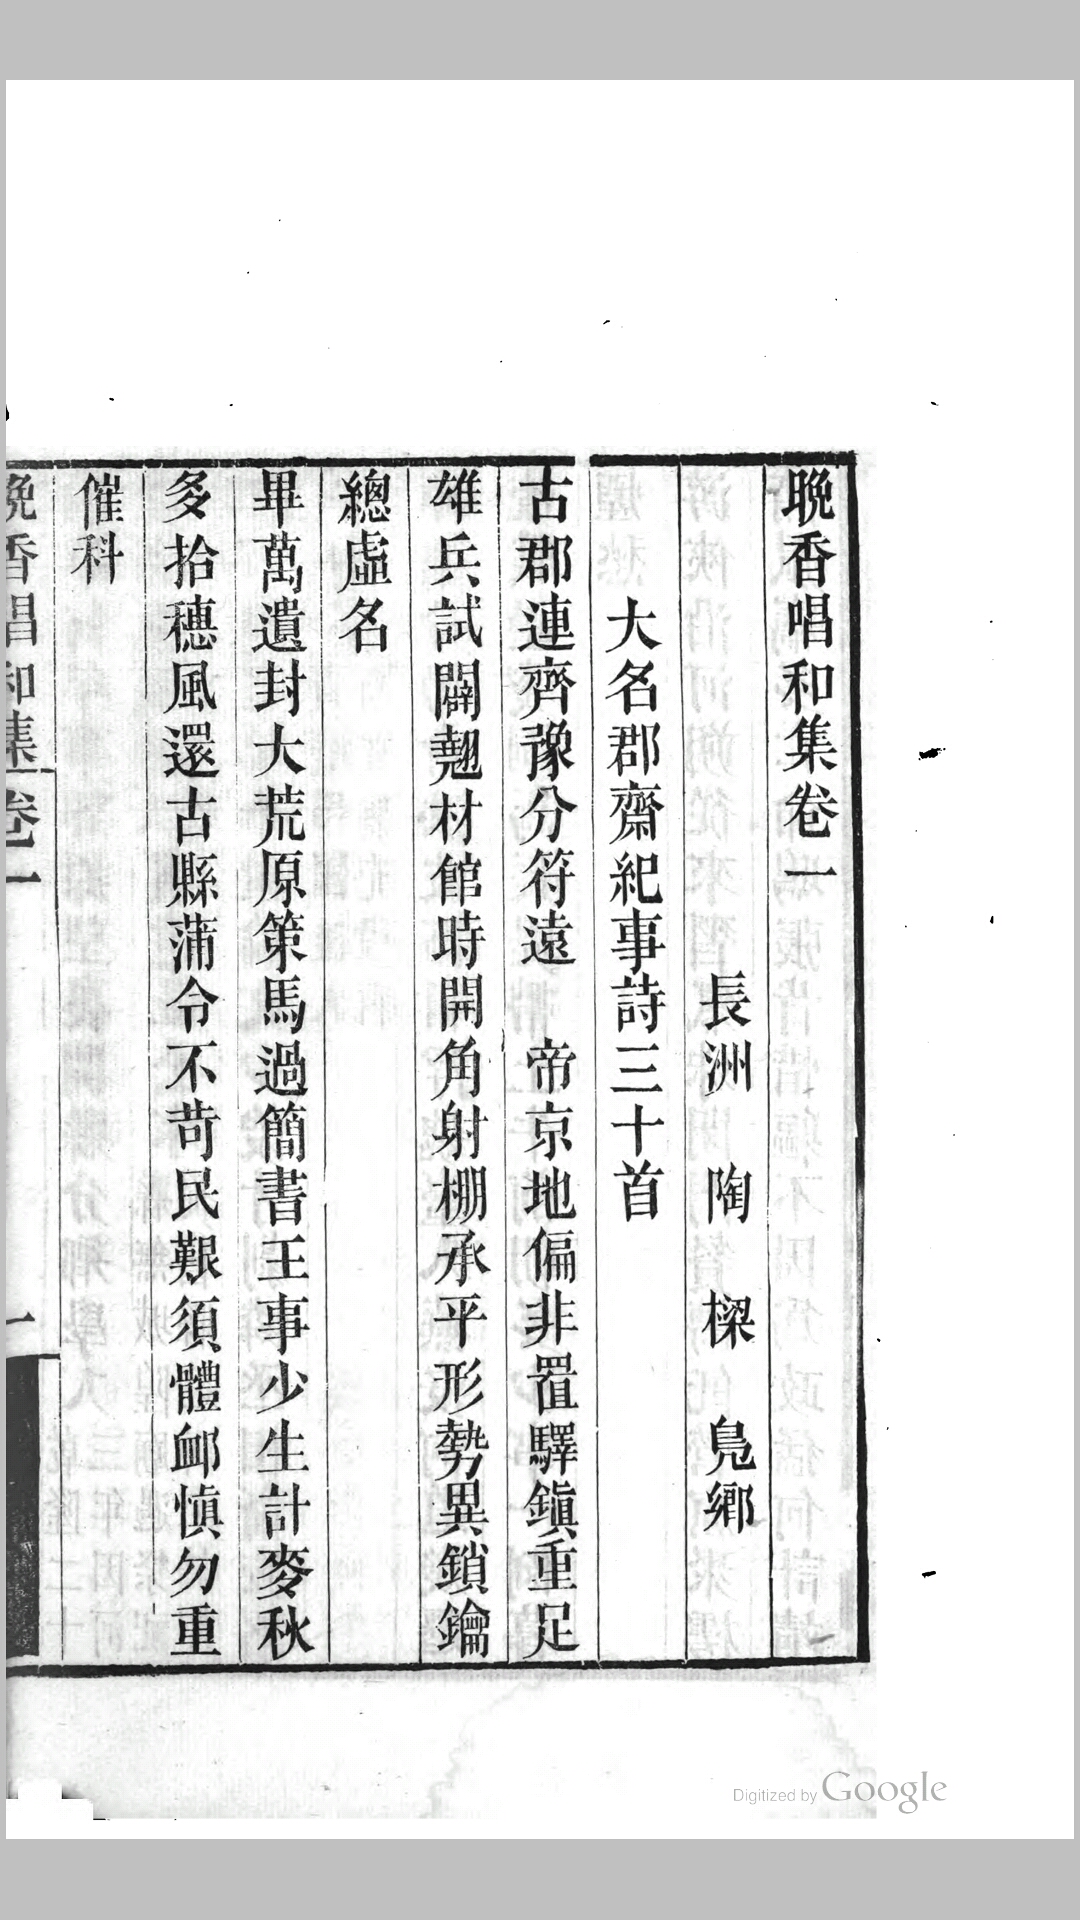 晩香唱和集卷一
長洲 陶 樑 鳧鄉
大名郡齋紀事詩三十首
古郡連齊豫分符遠 帝京地偏非置驛鎭重足
雄兵試闢翹材館時開角射棚承平形勢異鎖鑰
總虛名
畢萬遺封大荒原策馬過簡書王事少生計麥秋
多拾穗風還古縣蒲令不苛民艱須體䘏愼勿重
催科
晩香唱和集 卷一 一
Digitized by Google